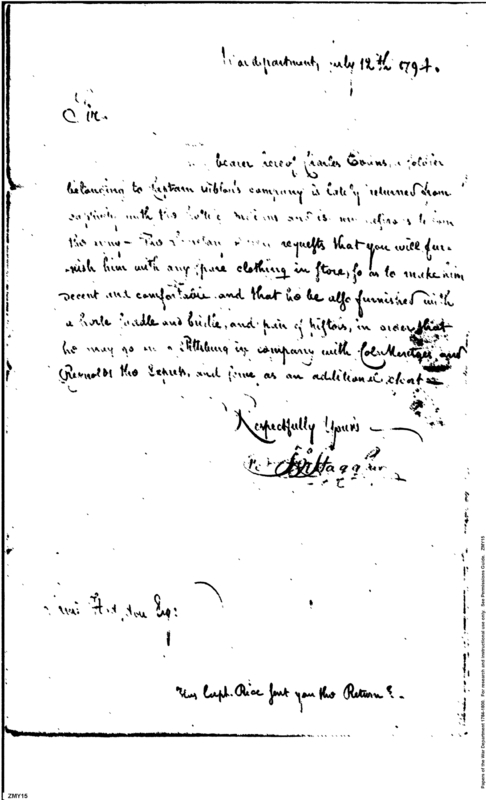 War department, July 12th 1794.
Sir.
bearer hereof Charles Evans, a soldier
belonging to Captain Gibson's company is lately returned from
captivity with the hostile Indians and is to join
the army - The requests that you will fur-
-nish him with any spare clothing in store, so as to make him
decent and comfortable and that he be also furnished with
a horse saddle and bridle, and pair of pistols, in order that
he may go on to Pittsburg in company with Colo. and
Reynolds the Express, and serve as an additional
Respectfully Yours
Jno Stagg Jr
Esq:
Has Capt. Rice sent you the Return
Papers of the War Department 1784-1800. For research and instructional use only. See Permissions Guide. ZMY15
ZMY15